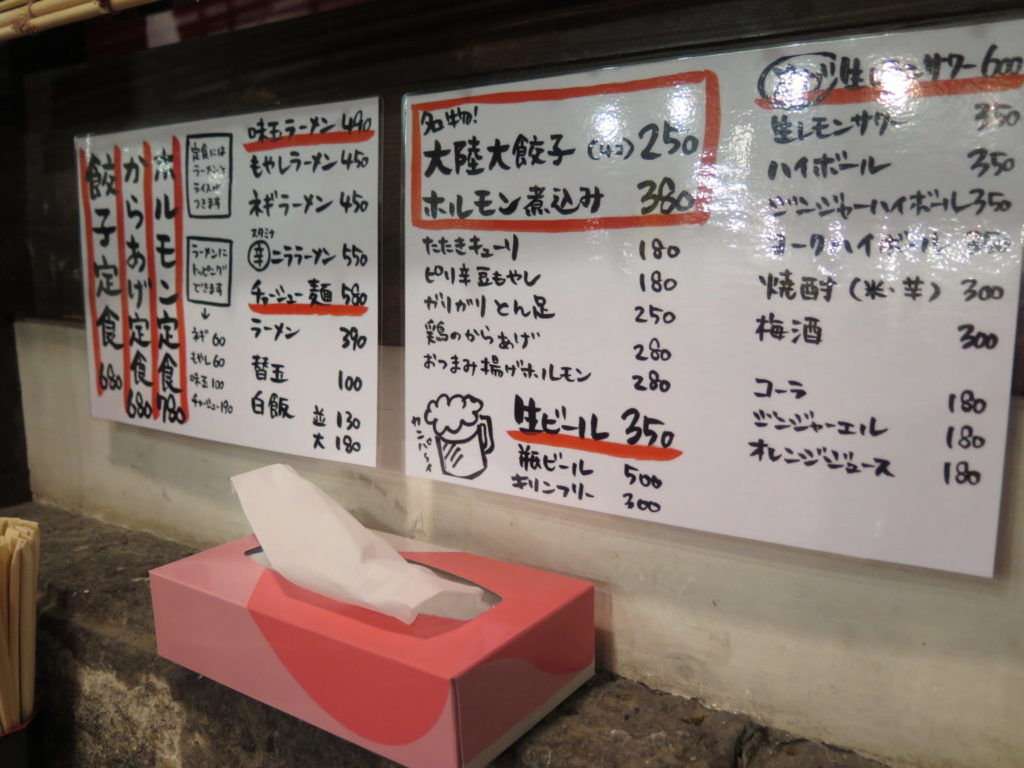 餃子定食 680
からあげ定食 680
ホルモン定食 780
定食には
ラーメンと
ライスが
つきます
ラーメンに
トッピング
できます
↓
ネギ 60
もやし 60
味玉 100
チャーシュー 190
味玉ラーメン 490
もやしラーメン 450
ネギラーメン 450
スタミナ
辛ニララーメン 550
チャーシュー麺 580
ラーメン 390
替玉 100
白飯 並 130
大 180
名物!
大陸大餃子(4コ) 250
ホルモン煮込み 380
たたきキューリ 180
ピリ辛豆もやし 180
がりがりとん足 250
鶏のからあげ 280
おつまみ揚げホルモン 280
カンパーイ
生ビール 350
瓶ビール 500
キリンフリー 300
生レモンサワー 600
生レモンサワー 350
ハイボール 350
ジンジャーハイボール 350
コークハイボール 350
焼酎(米・芋) 300
梅酒 300
コーラ 180
ジンジャーエール 180
オレンジジュース 180